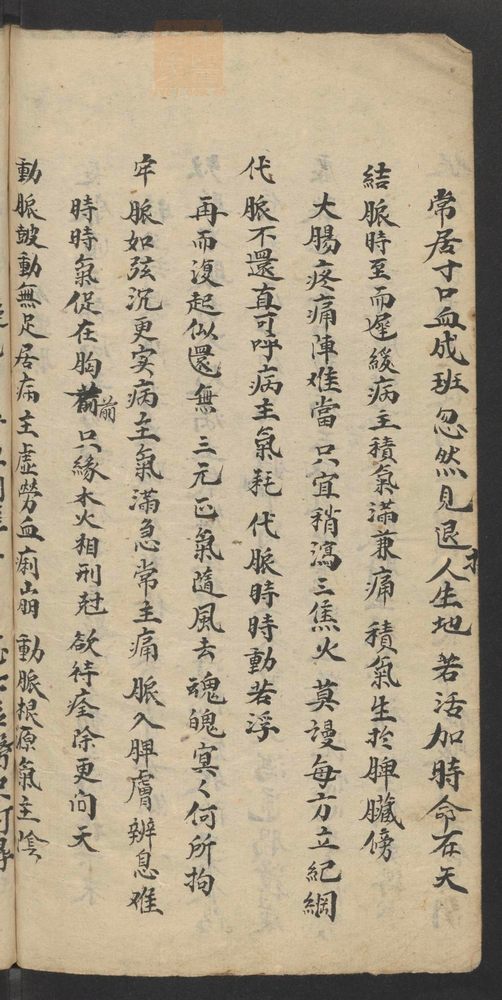 常居寸口血成班忽然見退人生地若活加時命在天
結脈時至而遲緩病主積氣滿兼痛積氣生於脾臟傍
大腸疼痛陣难當只宜稍瀉三焦火莫謾每方立紀綱
代脈不還真可呼病主氣耗代脈時時動若浮
再而復起似還無三元正氣隨風去魂魄冥々何所拘
牢脈如弦沉更实病主氣滿急常主痛脈入脾膚辨息难
時時氣促在胸前前只緣木火相刑尅欲待痊除更问天
動脈皷動無足居病主虛勞血痢崩動脈根原氣主陰